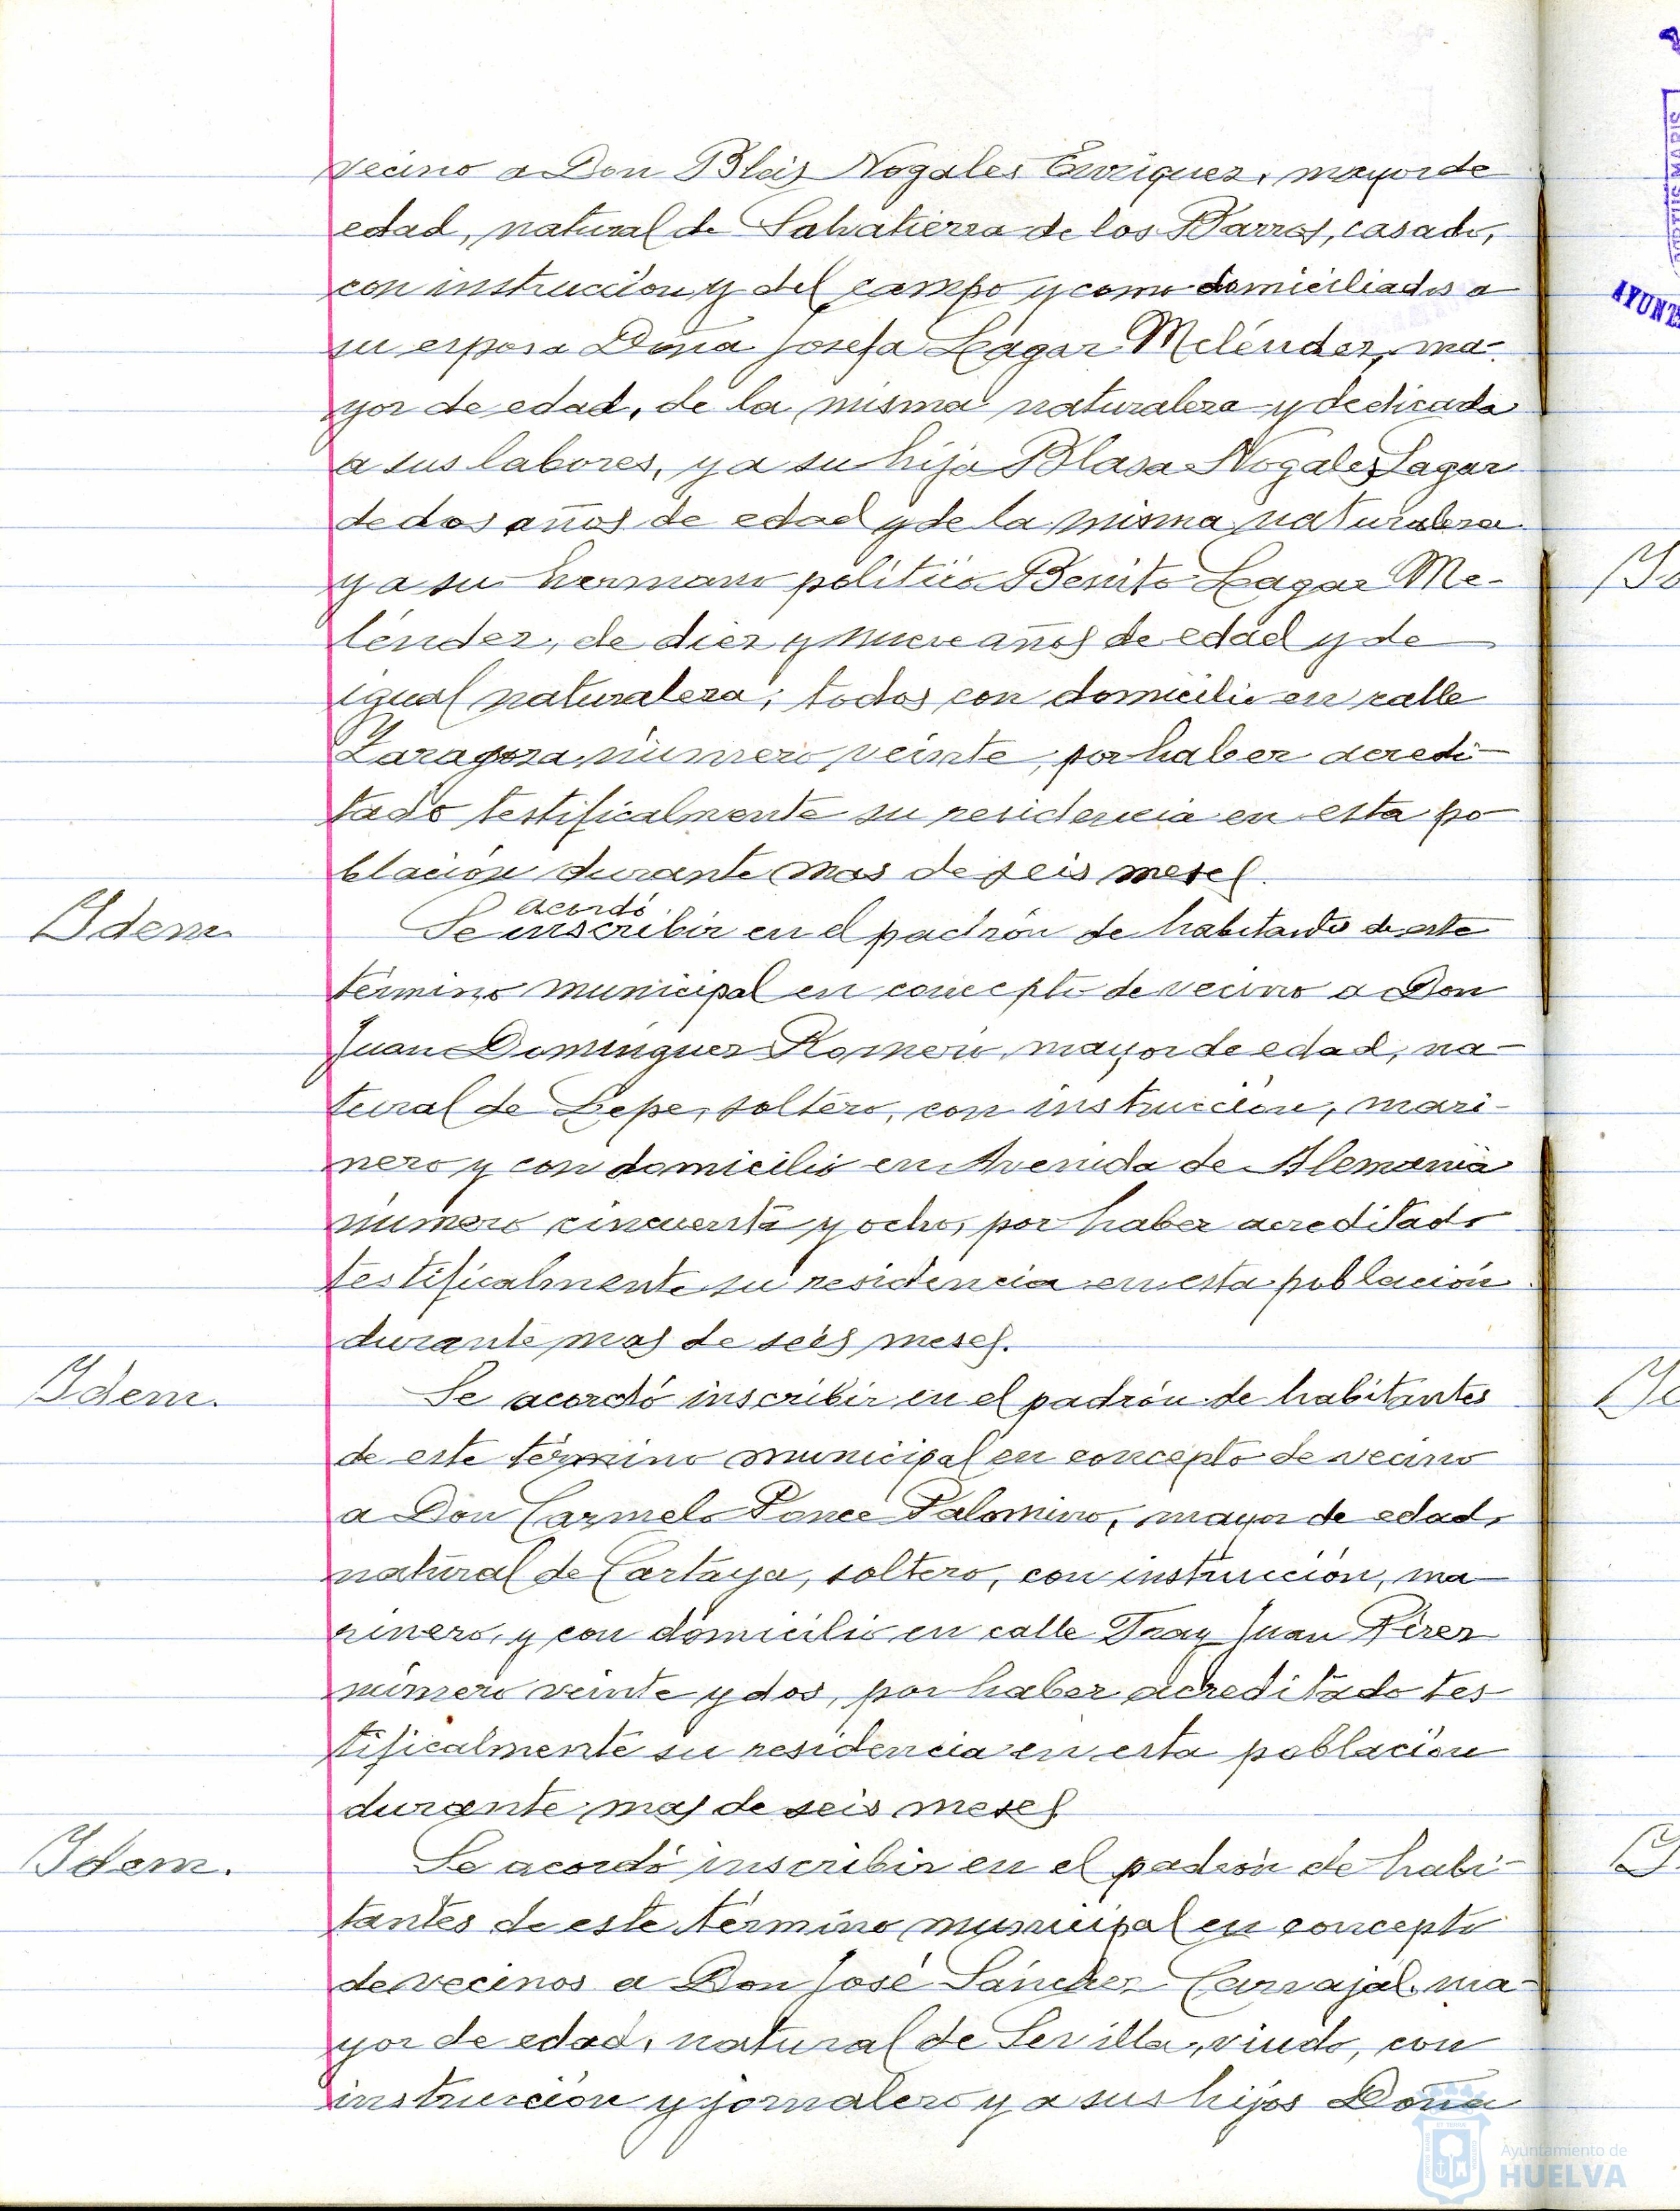 vecino a Don Blas Nogales Enriquez, mayor de
edad, natural de Salvatierra de los Barros, casado,
con instrucción y del campo y como domiciliados a
su esposa Doña Josefa Lagar Meléndez, ma-
yor de edad, de la misma naturaleza y dedicada
a sus labores, y a su hija Blasa Nogales Lagar
de dos años de edad y de la misma naturaleza
y a su hermano político Benito Lagar Me-
léndez, de diez y nueve años de edad y de
igual naturaleza; todos con domicilio en calle
Zaragoza, número veinte, por haber acredi-
tado testificalmente su residencia en esta po-
blación durante mas de seis meses.
Idem
acordó
Se inscribir en el padrón de habitantes de este
término municipal en concepto de vecino a Don
Juan Domínguez Romero, mayor de edad, na-
tural de Lepe, soltero, con instrucción, mari-
nero y con domicilio en Avenida de Alemania
número cincuenta y ocho, por haber acreditado
testificalmente su residencia en esta población
durante mas de seis meses.
Idem.
Se acordó inscribir en el padrón de habitantes
de este término municipal en concepto de vecino
a Don Carmelo Ponce Palomino, mayor de edad,
natural de Cartaya, soltero, con instrucción, ma-
rinero, y con domicilio en calle Fray Juan Pérez
número veinte y dos, por haber acreditado tes-
tificalmente su residencia en esta población
durante mas de seis meses
Idem.
Se acordó inscribir en el padrón de habi-
tantes de este término municipal en concepto
de vecinos a Don José Sánchez Carvajal, ma-
yor de edad, natural de Sevilla, viudo, con
instrucción y jornalero y a sus hijos Doña
Ayuntamiento de
HUELVA